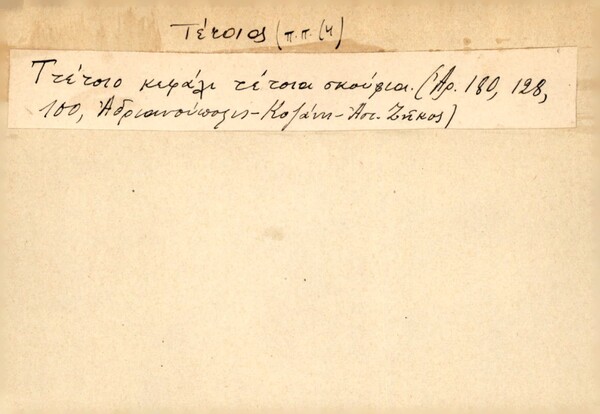 Τέτοιος (π.π. (4)
Τέτοιο κεφάλι τέτοια σκούφια. (Ἀρ. 180, 128,
100, Ἀδριανούπολις-Κοζάνη-Ἀστ. Ζῆκος)